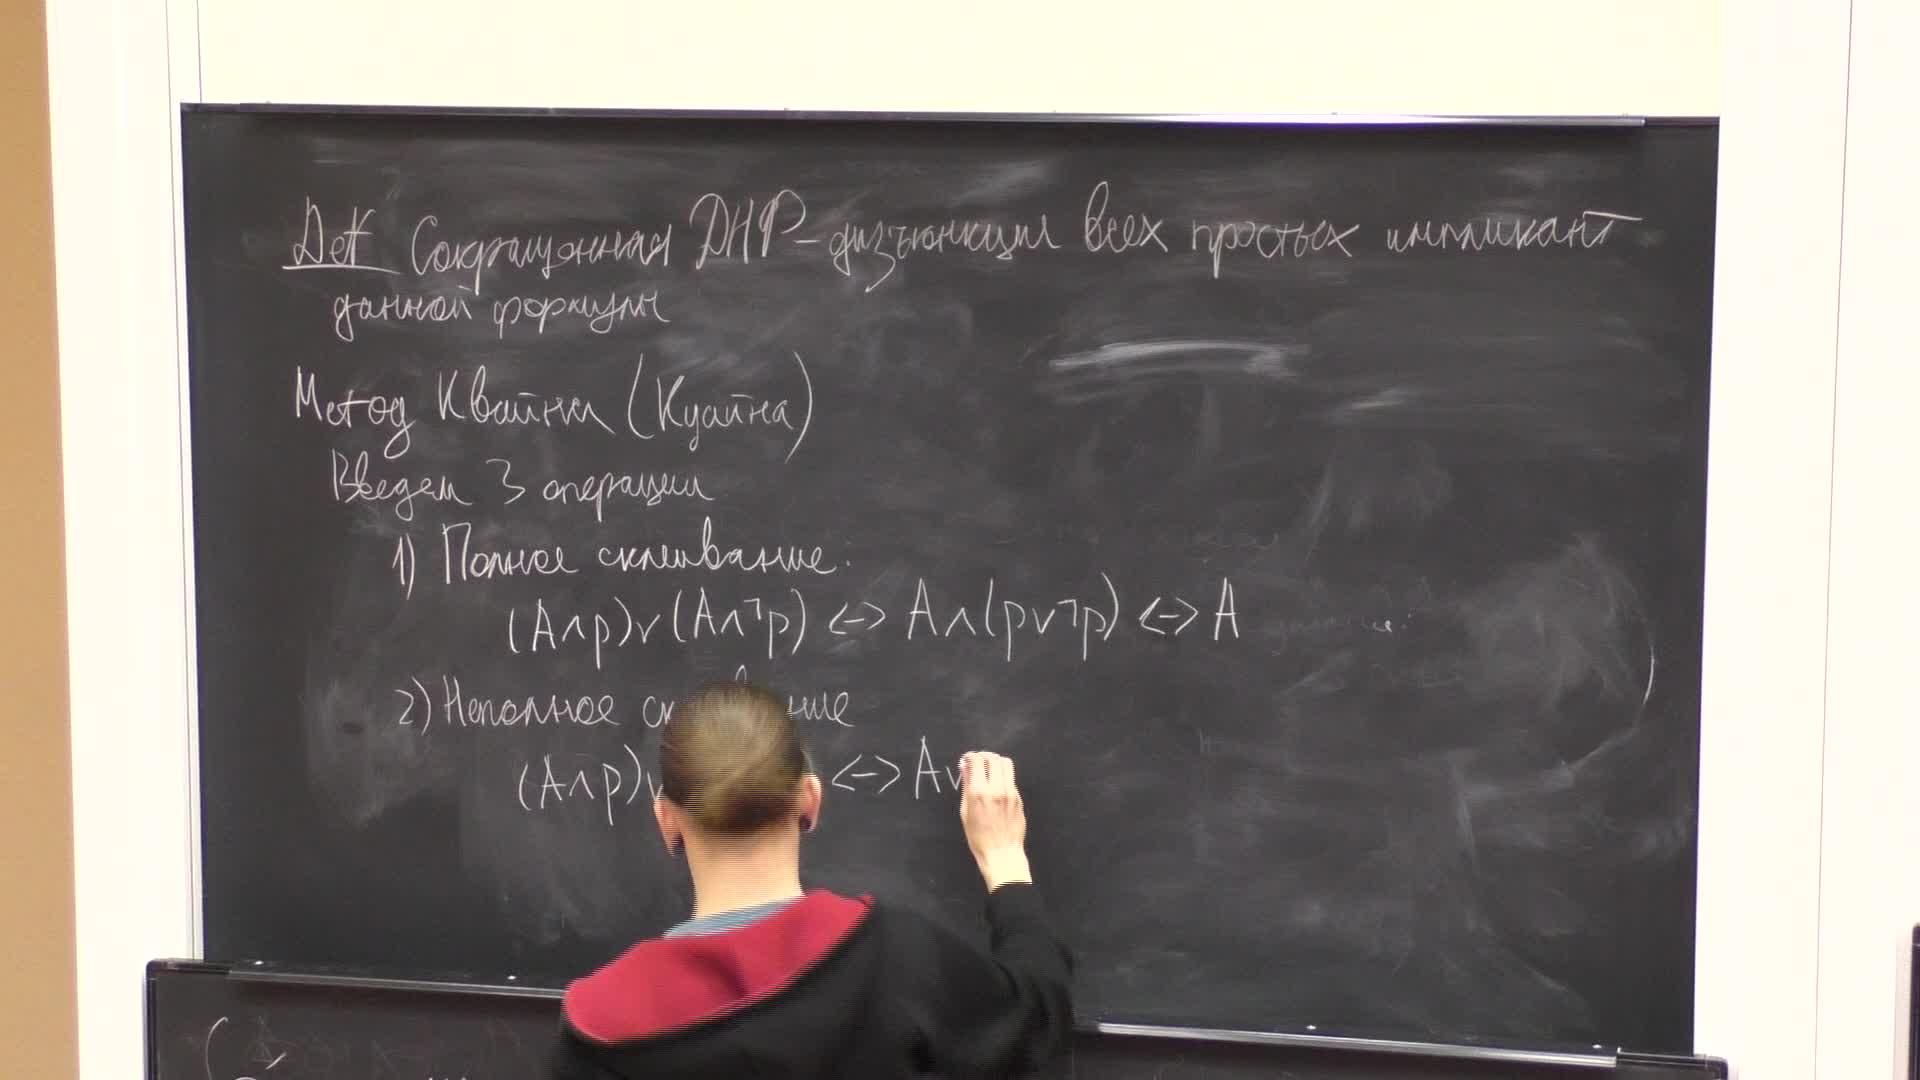 Def Сокращенная ДНФ - дизъюнкция всех простых импликант
данной формулы
Метод Квайна (Куайна)
Введем 3 операции
1) Полное склеивание.
(A∧p)∨(A∧¬p) <-> A∧(p∨¬p) <-> A
2) Неполное
(A∧p)∨ <-> A∨